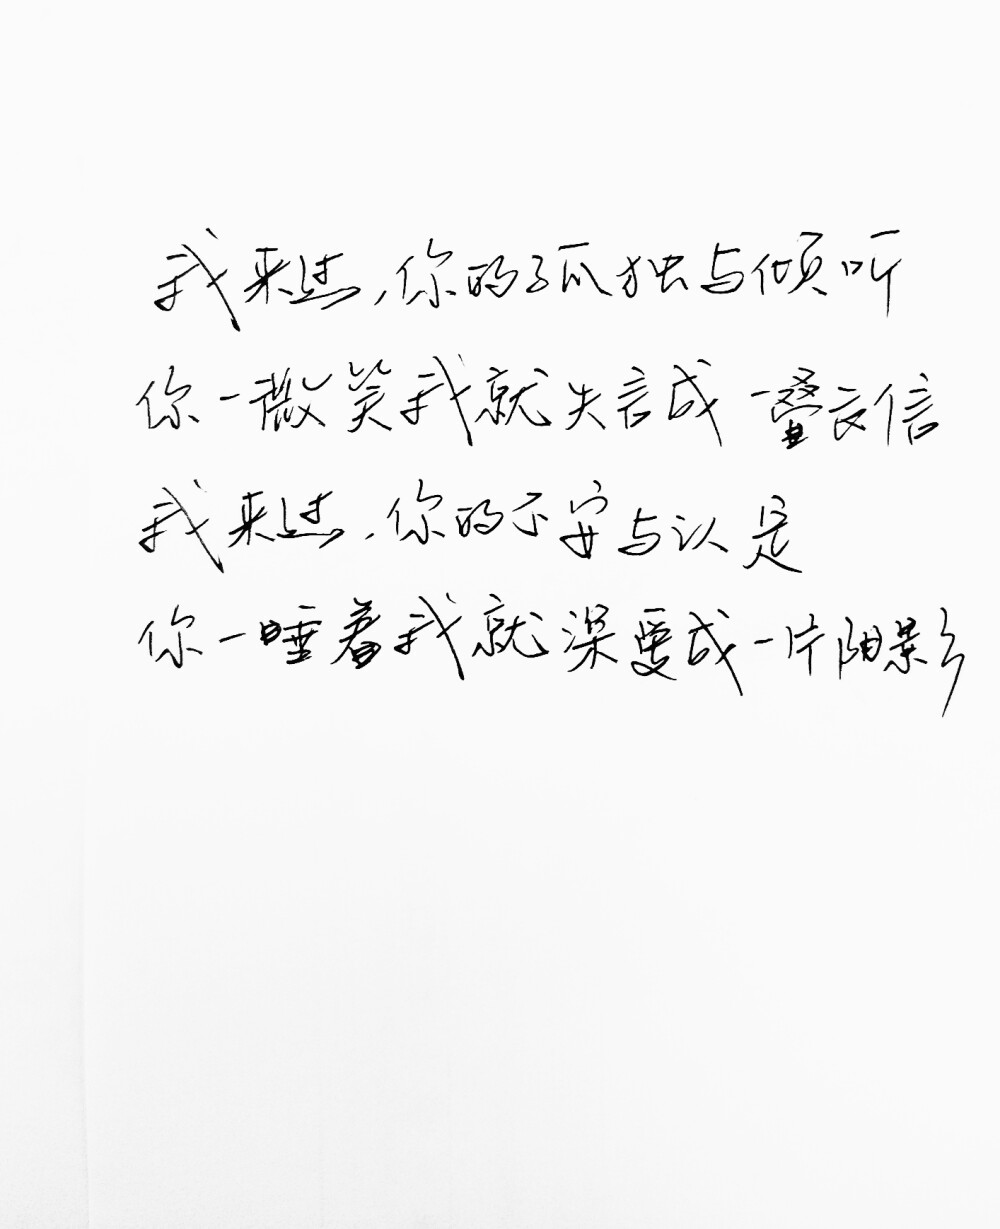 我来过,你的孤独与倾听
你一微笑我就失言成一叠信
我来过,你的不安与认定
你一睡着我就深爱成一片阴影